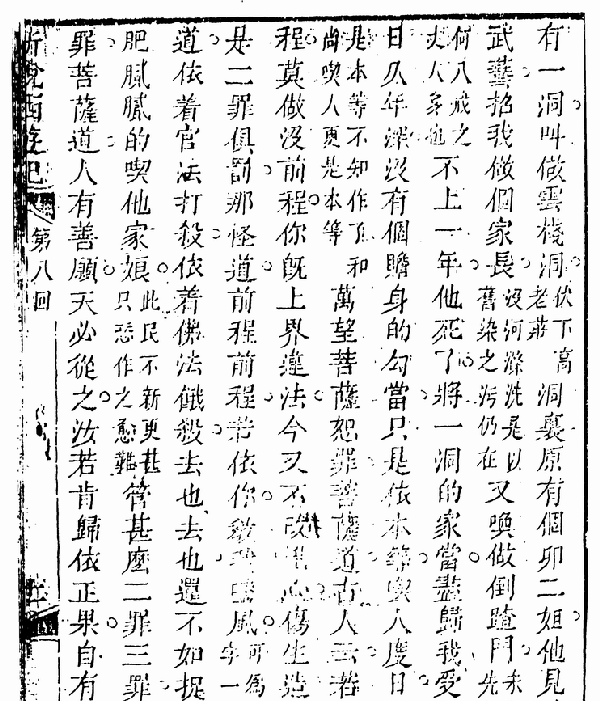 有一洞叫做雲棧洞伏下高老莊洞裏原有個卯二姐他見
武藝招我做個家長沒河滌洗是以舊染之污仍在又喚做倒踏門未先
何八戒之丈人多也不上一年他死了將一洞的家當盡歸我受
日久年深沒有個贍身的勾當只是依本等喫人度日
是本等不知作了和尚喫人更是本等萬望菩薩恕罪菩薩道古人云若
程莫做沒前程你旣上界違法今又不改兇心傷生造
是二罪俱罰那怪道前程前程若依你敎我嗑風可為字一
道依着官法打殺依着佛法餓殺去也去也還不如捉
肥膩膩的喫他家娘此民不新更甚只恐作之愈難管甚麼二罪三罪
罪菩薩道人有善願天必從之汝若肯歸依正果自有
新說西遊記 第八回